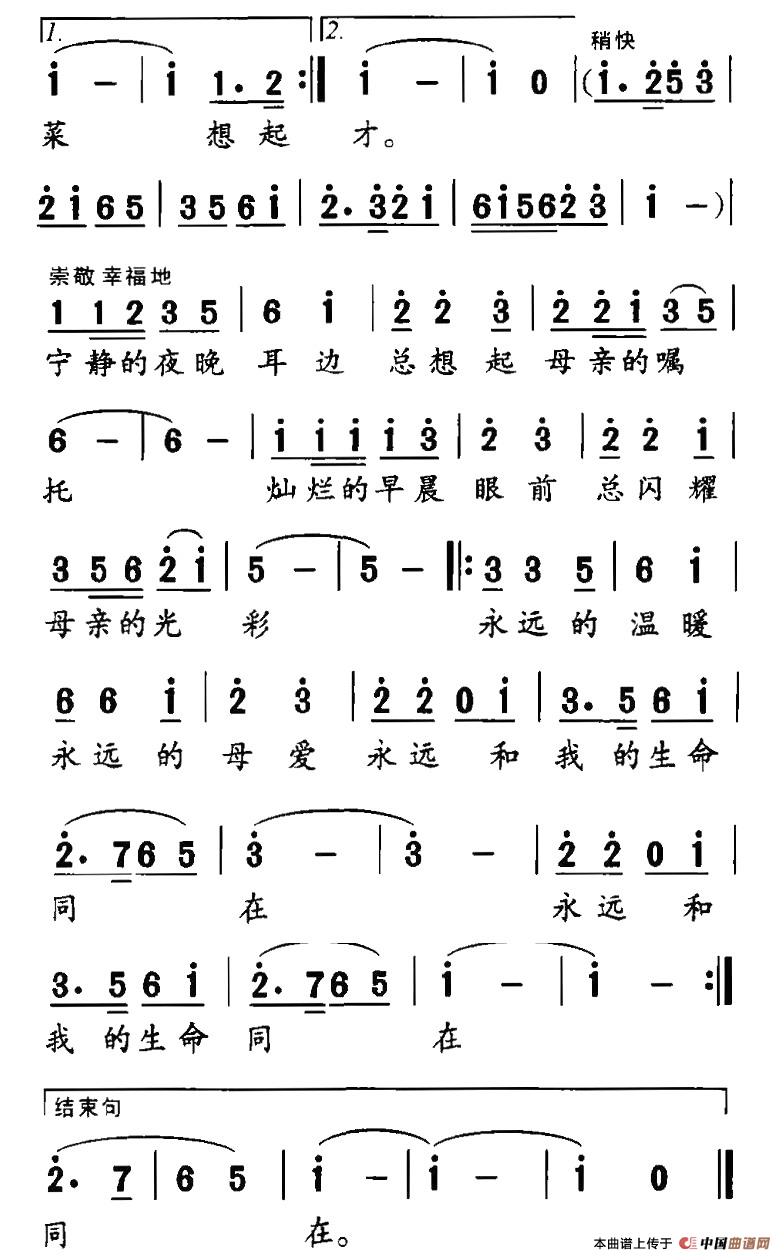 1. 2. 稍快
i － | i 1. 2 :‖ i － | i 0 | (i. 2 5 3 |
菜 想起 才。
2 i 6 5 | 3 5 6 i | 2. 3 2 i | 6 i 5 6 2 3 | i － ) |
崇敬 幸福地
1 1 2 3 5 | 6 i | 2 2 3 | 2 2 i 3 5 |
宁静的夜晚 耳边 总想起 母亲的嘱
6 － | 6 － | i i i i 3 | 2 3 | 2 2 i |
托 灿烂的早晨 眼前 总闪耀
3 5 6 2 i | 5 － | 5 － ‖: 3 3 5 | 6 i |
母亲的光 彩 永远的温暖
6 6 i | 2 3 | 2 2 0 i | 3. 5 6 i |
永远的母爱 永远 和 我的生命
2. 7 6 5 | 3 － | 3 － | 2 2 0 i |
同 在 永远 和
3. 5 6 i | 2. 7 6 5 | i － | i － :‖
我的生命 同 在
结束句
2. 7 | 6 5 | i － | i － | i 0 ‖
同 在。
本曲谱上传于 中国曲谱网